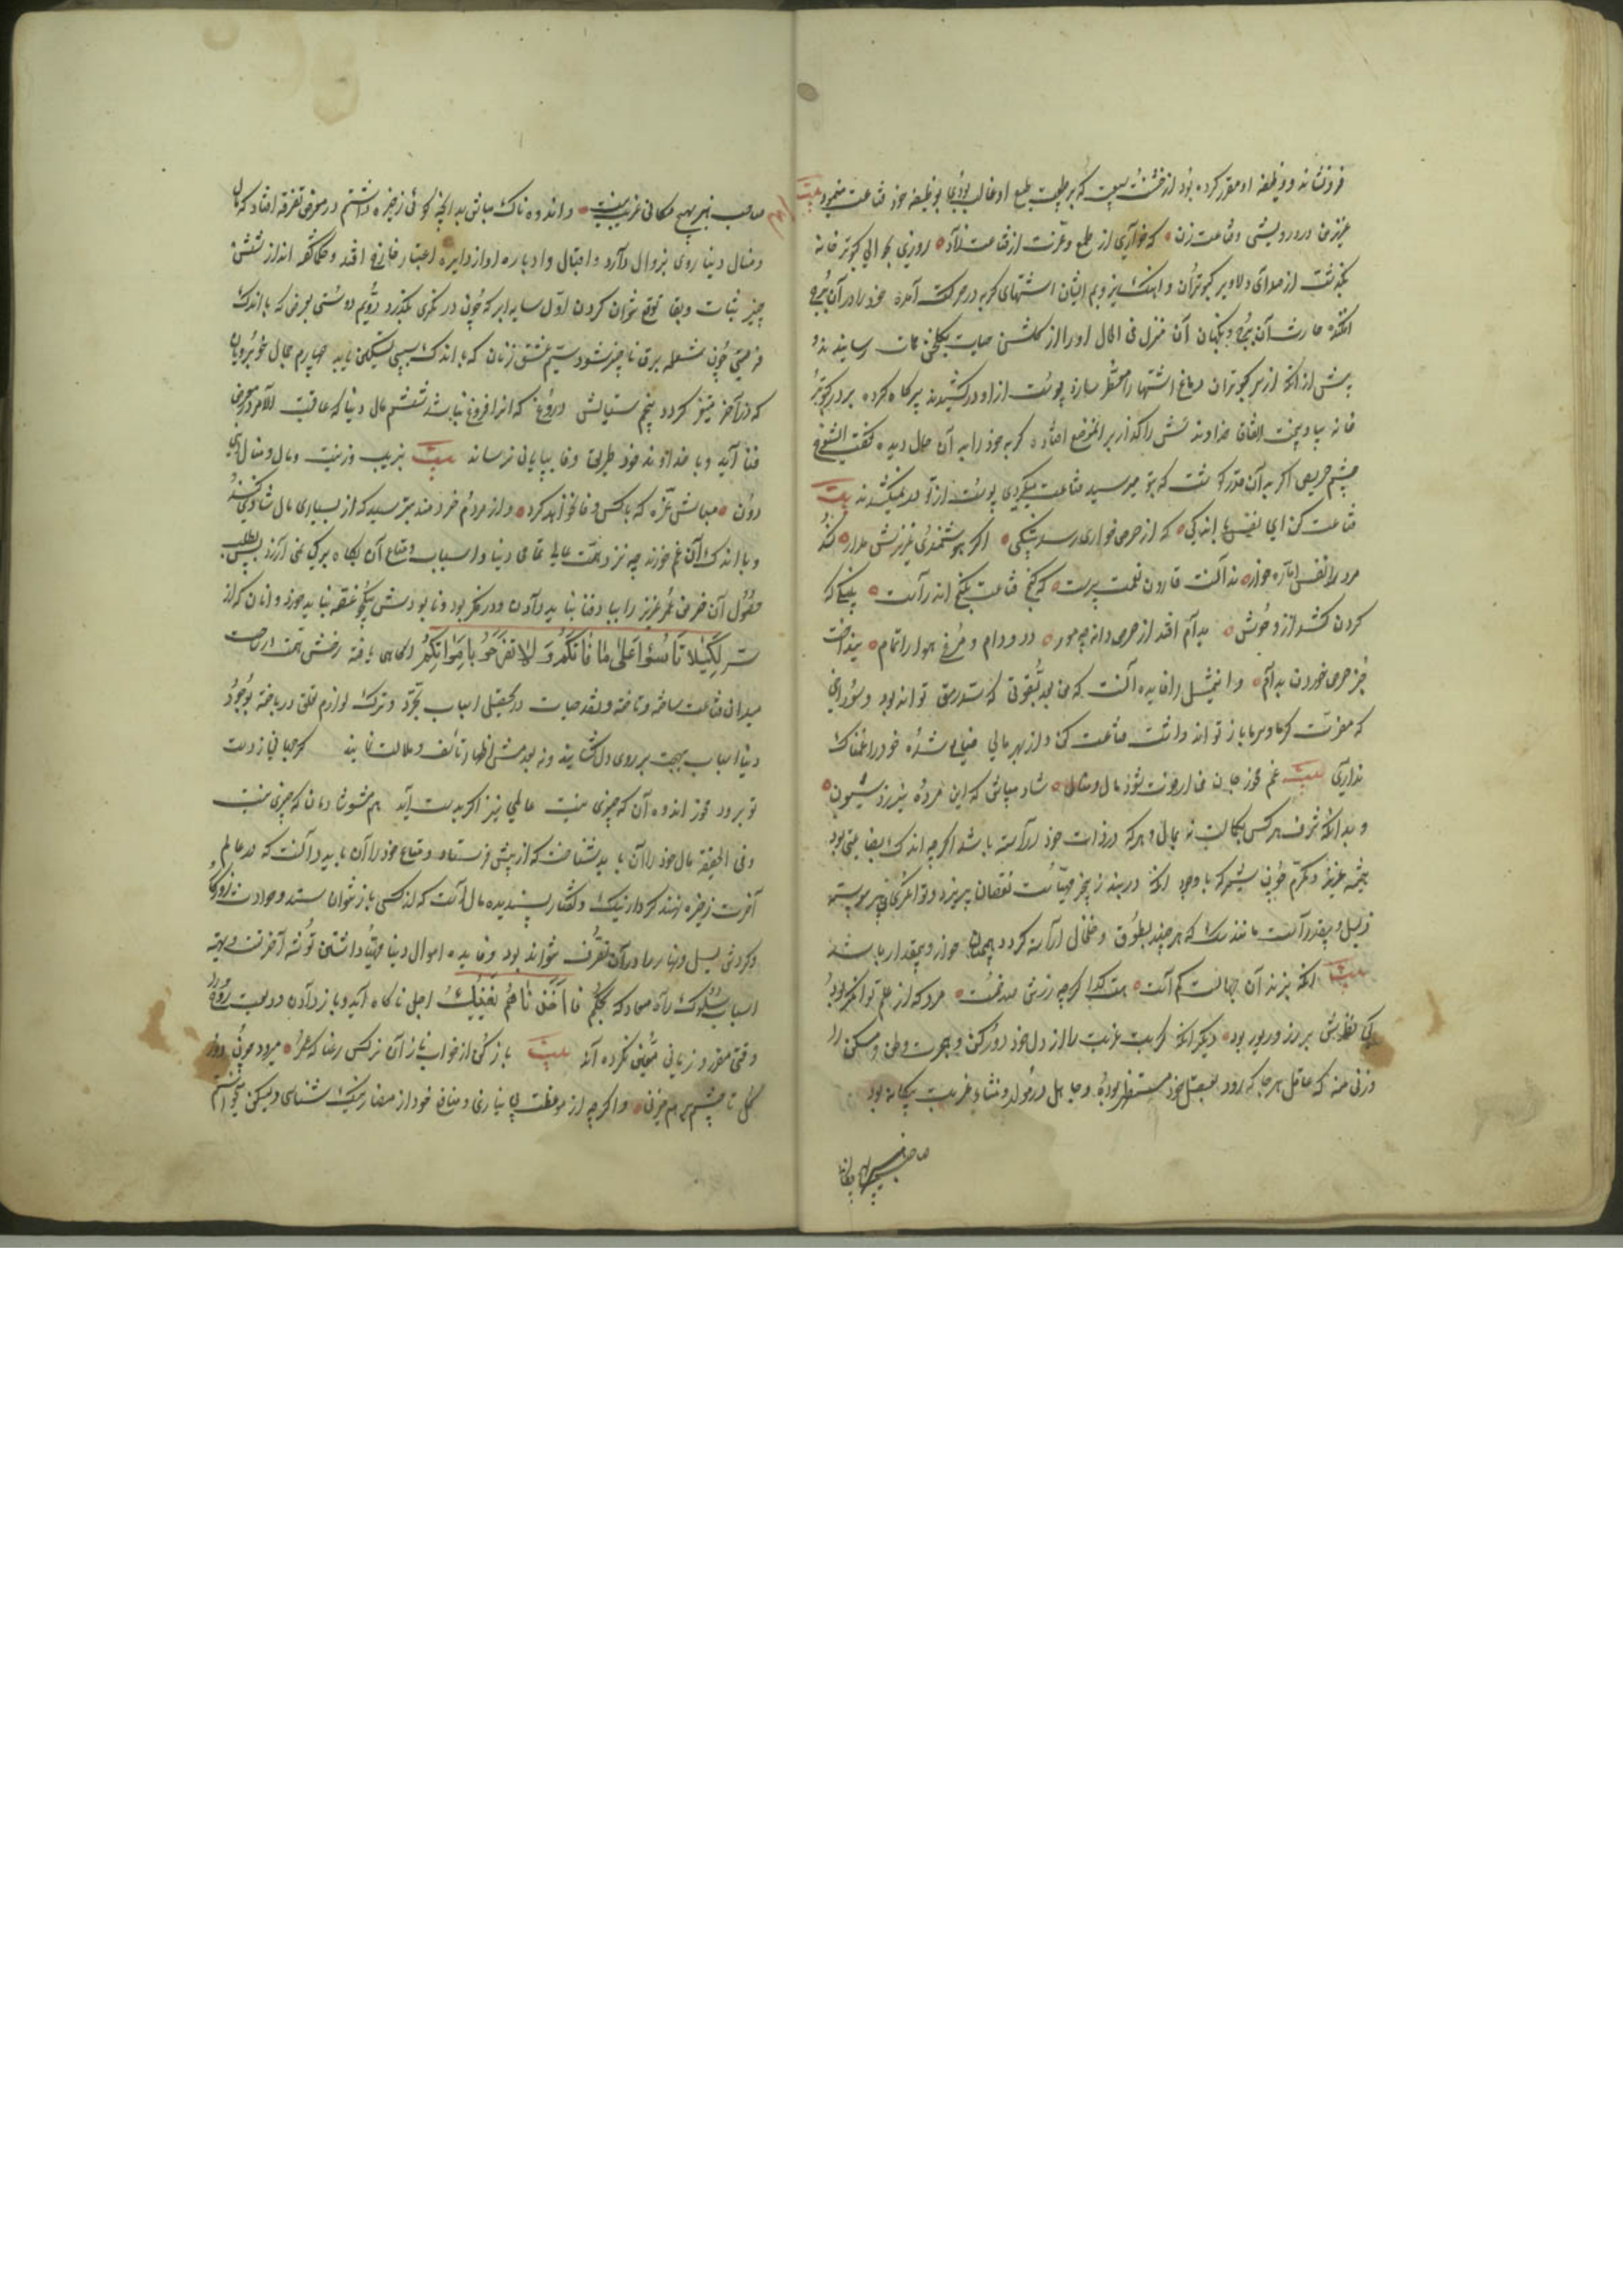 فرونشاند و وظیفه او مقرر کرده بود از
عزیز من درویشی و قناعت زن که خواری از طمع و عزت از قناعت زاد روزی بحوالی کبوتر خانه
بگذشت از صدای دلاویز کبوتران و ایشان اشتهای گربه در حرکت آمده خود را در آن برج
افکند حارث آن برج و نگهبان آن منزل فی الحال او را از گلشن حیات بگلخن ممات رسانید و
پیش از آنکه از کبوتران دماغ اشتها را معطر سازد پوست از او در کشیدند پرکاه کرده بر در کبوتر
خانه بیاویخت اتفاقا خداوندش را گذار بر آن موضع افتاده گربه خود را به آن حال دیده گفت ای شوخ
چشم حریص اگر به آن قدر گوشت که بتو میرسید قناعت میکردی پوست از تو نمیکشیدند بیت
قناعت کن ای نفس باندکی که از حرص خواری رسد بیشکی اگر هوشمندی عزیزش مدار کند
مرد را نفس اماره خوار نه آنست قارون نعمت پرست که گنج قناعت بکنج اندر است
کردن کشد از وحوش بدام افتد از حرص دانه چو مور دد و دام و مرغ هوا را تمام نینداخت
جز حرص خوردن بدام و این مثل را فایده آنست که من بعد بقوتی که سد رمق تواند بود و سوراخی
که مضرت گرما و سرما باز تواند داشت قناعت کن و از بهر مالی ضایع شده خود را غمناک
نداری بیت غم مخور جان من ار فوت شود مال و منال شاد میباش که این مرده نیرزد شیون
و بدانکه شرف هرکس بکمالست نه بمال و هرکه در ذات خود آراسته باشد اگرچه اندک بضاعتی بود
همیشه عزیز و مکرم چون شیر که با وجود آنکه در بند زنجیر نقصان نپذیرد و توانگر
ذلیل و بیقدر است مانند سگ که هرچند بطوق و خلخال آراسته گردد همچنان خوار و بیمقدار باشد
بیت آنکه بنزد آن جهالت کم است هست گدا گرچه زرش صد خم است مرد که از علم توانگر بود
کی نظرش بر زر و زیور بود دیگر آنکه کربت غربت را از دل خود دور کن و هجرت وطن و مسکن را
وزنی منه که عاقل هرجا که رود بعقل خود مستظهر بوده و جاهل در مولد و منشأ غریب بیگانه بود
صاحب هنر بهیچ مکانی غریب نیست
صاحب هنر بهیچ مکانی غریب نیست و اندوه ناک مباش بدانچه گوئی ذخیره داشتم در معرض تفرقه افتاد که مال
و منال دنیا روی بزوال دارد و اقبال و ادبار او از دایره اعتبار خارج افتد و حکما گفته اند از شش
چیز ثبات و بقا توقع نتوان کردن اول سایه ابر که چون در نگری بگذرد دویم دوستی بغرض که باندک
فرصتی چون شعله برق ناچیز شود سیم عشق زنان که باندک سببی تسکین یابد چهارم جمال خوبرویان
که در آخر متغیر گردد پنجم ستایش دروغ که آنرا فروغ نباشد ششم مال دنیا که عاقبت الامر در معرض
فنا آید و با خداوند خود طریق وفا بپایان نرساند بیت بزیب و زینت و مال و منال
دون مباش غره که با کس وفا نخواهد کرد و از مردم خردمند میسزد که از بسیاری مال شادی نکنند
و باندک آن غم خورند چه نزد همت عالی تمامی دنیا و اسباب و متاع آن بکاه برگی نمی ارزد پس بطلب
حصول آن خرمن عمر عزیز را بباد فنا نباید دادن و در فکر بود و نابودش یکجو غصه نباید خورد و آنان که از
سر لِکَیْلا تَأسَوْا عَلى ما فاتَکُمْ وَ لا تَفْرَحُوا بِما آتاکُمْ آگاهی یافته رخش همت در ساحت
میدان قناعت ساخته و تاخته و نقد حیات در تحصیل اسباب تجرد و ترک لوازم تعلق درباخته بوجود
دنیا اسباب بهجت بر روی دل گشایند و نه بعدمش اظهار تأسف و ملالت نمایند گر جهانی ز دست
تو برود مخور اندوه آن که چیزی نیست عالمی نیز اگر بدست آید هم مشو شادمان که چیزی نیست
و فی الحقیقة مال خود را آن باید شناخت که از پیش فرستاده و متاع خود را آن باید دانست که در عالم
آخرت ذخیره نهند کردار نیک و گفتار پسندیده مال آنست که از کسی باز نتوان ستد و حوادث روزگار
و گردش لیل و نهار را در آن تصرف نتواند بود و فایده اموال دنیا مهیا داشتن توشه آخرتست و تهیه
اسباب سلوک راه معاد که بحکم فأخذناهم بغتة پیک اجل ناگاه آید و باز دادن ودیعت روح را
وقتی مقرر و زمانی معین نکرده اند بیت باز کن از خواب ناز آن نرگس رعنا که عمر میرود چون دور
گل تا چشم بر هم میزنی و اگرچه از موعظت من بی نیازی و منافع خود از مضار نیک شناسی و لیکن خواستم